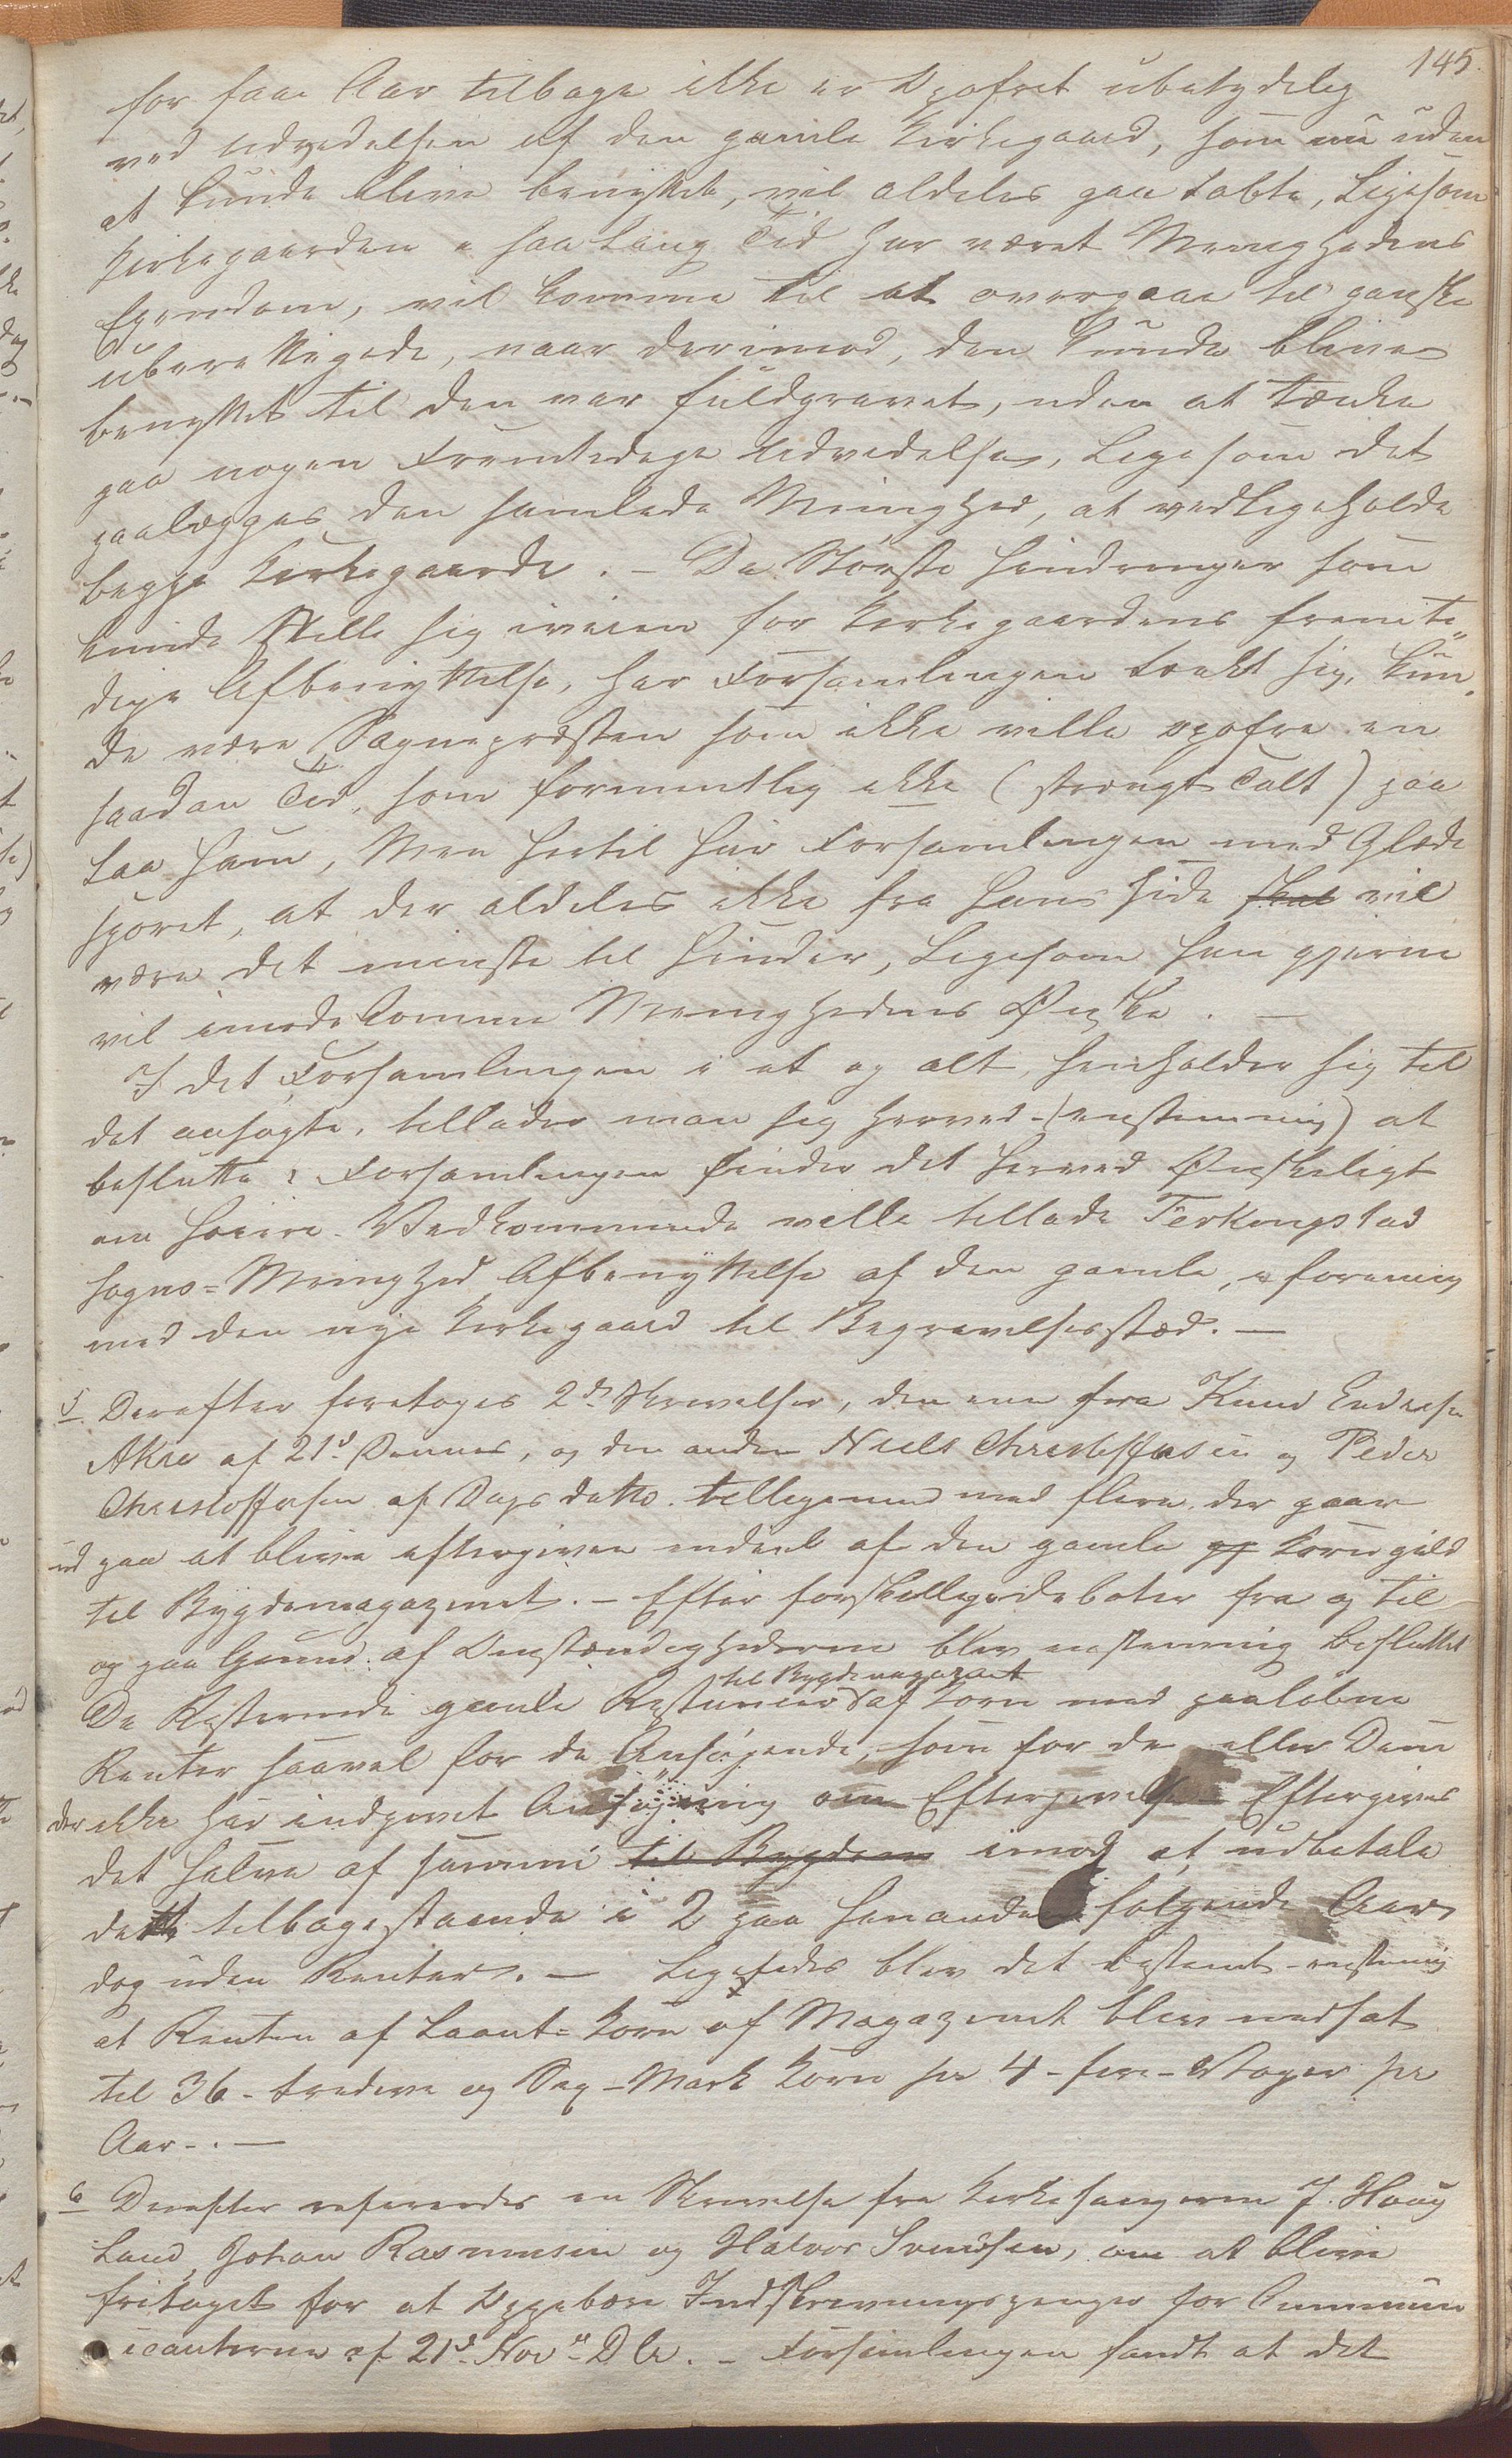 145.
for faae Aar tilbage ikke er Opofret ubetydelig
ved Udvidelsen af den gamle Kirkegaard, som nu uden
at kunde blive benyttet, vil aldeles gaa tabte, Ligesom
Kirkegaarden i saa Lang Tid har været Menighedens
Ejendom, vil komme til at overgaae til ganske
uberettigede, naar derimod, den kunde blive
benyttet til den var fuldgravet, uden at tænke
paa nogen Fremtidige Udvidelse, Ligesom det
paalegges den samlede Menighed, at vedligeholde
begge Kirkegaarde. – De Største Hindringer som
kunde stille sig iveien for Kirkegaardens fremti„
dige Afbenyttelse, har Forsamlingen tænkt sig, kun„
de være Sognepræsten som ikke ville opofre en
saadan Tid, som formentlig ikke (strængt Talt) paa
Laa ham, Men hertil har Forsamlingen med Glæde
sporet, at der aldeles ikke fra hans side skal vil
være det minste til Hinder, Ligesom han gjerne
vil imødekomme Menighedens Ønske. –
I det Forsamlingen i et og alt, henholder sig til
det ansøgte, tillader man sig herved (enstemmig) at
beslutte: Forsamlingen finder det herved Ønskeligt
om høiere Vedkommende ville tillade Ferkingstad
Sogns=Menighed Afbenyttelse af den gamle, i forening
med den nye Kirkegaard til Begravelsessted. –
5 Derefter foretoges 2de Skrivelser, den ene fra Knud Endresen
Akre af 21d Dennes, og den anden Niels Christoffersen og Peder
Christoffersen af Dags datto tilligemed med flere der gaar
ud paa at blive eftergiven endeel af den gamle gj Korngield
til Bygdemagazinet. – Efter forskellige debater fra og til
og paa Grund af Omstændighederne blev enstemmig besluttet
til Bygdemagazinet
De Resterende gamle Restancer af Korn med paaløbne
Renter saavel for de Ansøgende, som for de eller Dem
der ikke har indgivet Ansøgning om Eftergivelse Eftergives
det halve af samme til Bygdem imod at udbetale
dette tilbagestaaende i 2 paa hinanden følgende Aar,
dog uden Renter. – Ligesedes blev det bestemt enstemmig
at Renten af Laant=Korn af Magazinet blev nedsat
til 36 - tredive og Sex - Mark Korn pr 4 - fire - Voger pr
Aar. –
6 Derefter refereredes en Skrivelse fra Kirkesangeren J. Houg
Land, Johan Rasmusen og Halvor Svendsen, om at blive
fritaget for at Oppebære Indskrivningspenger for Commun
icanterne af 21d Novr D A. – Forsamlingen fandt at det